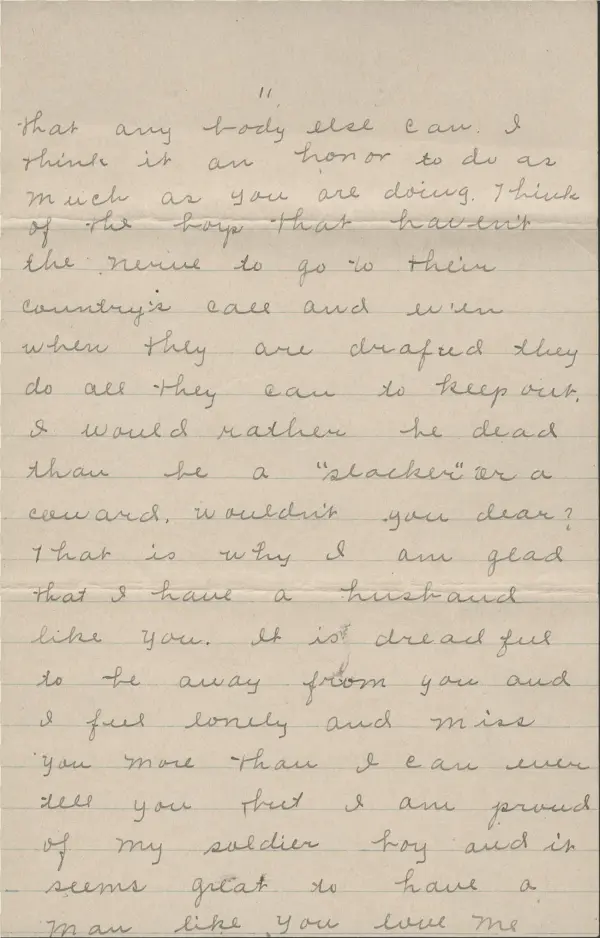 11
that any body else can. I
think it an honor to do as
much as you are doing. Think
of the boys that haven't
the nerve to go to their
country's call and even
when they are drafted they
do all they can to keep out.
I would rather be dead
than be a "slacker" or a
coward, wouldn't you dear?
That is why I am glad
that I have a husband
like you. It is dreadful
to be away from you and
I feel lonely and miss
you more than I can ever
tell you but I am proud
of my soldier boy and it
seems great to have a
man like you love me